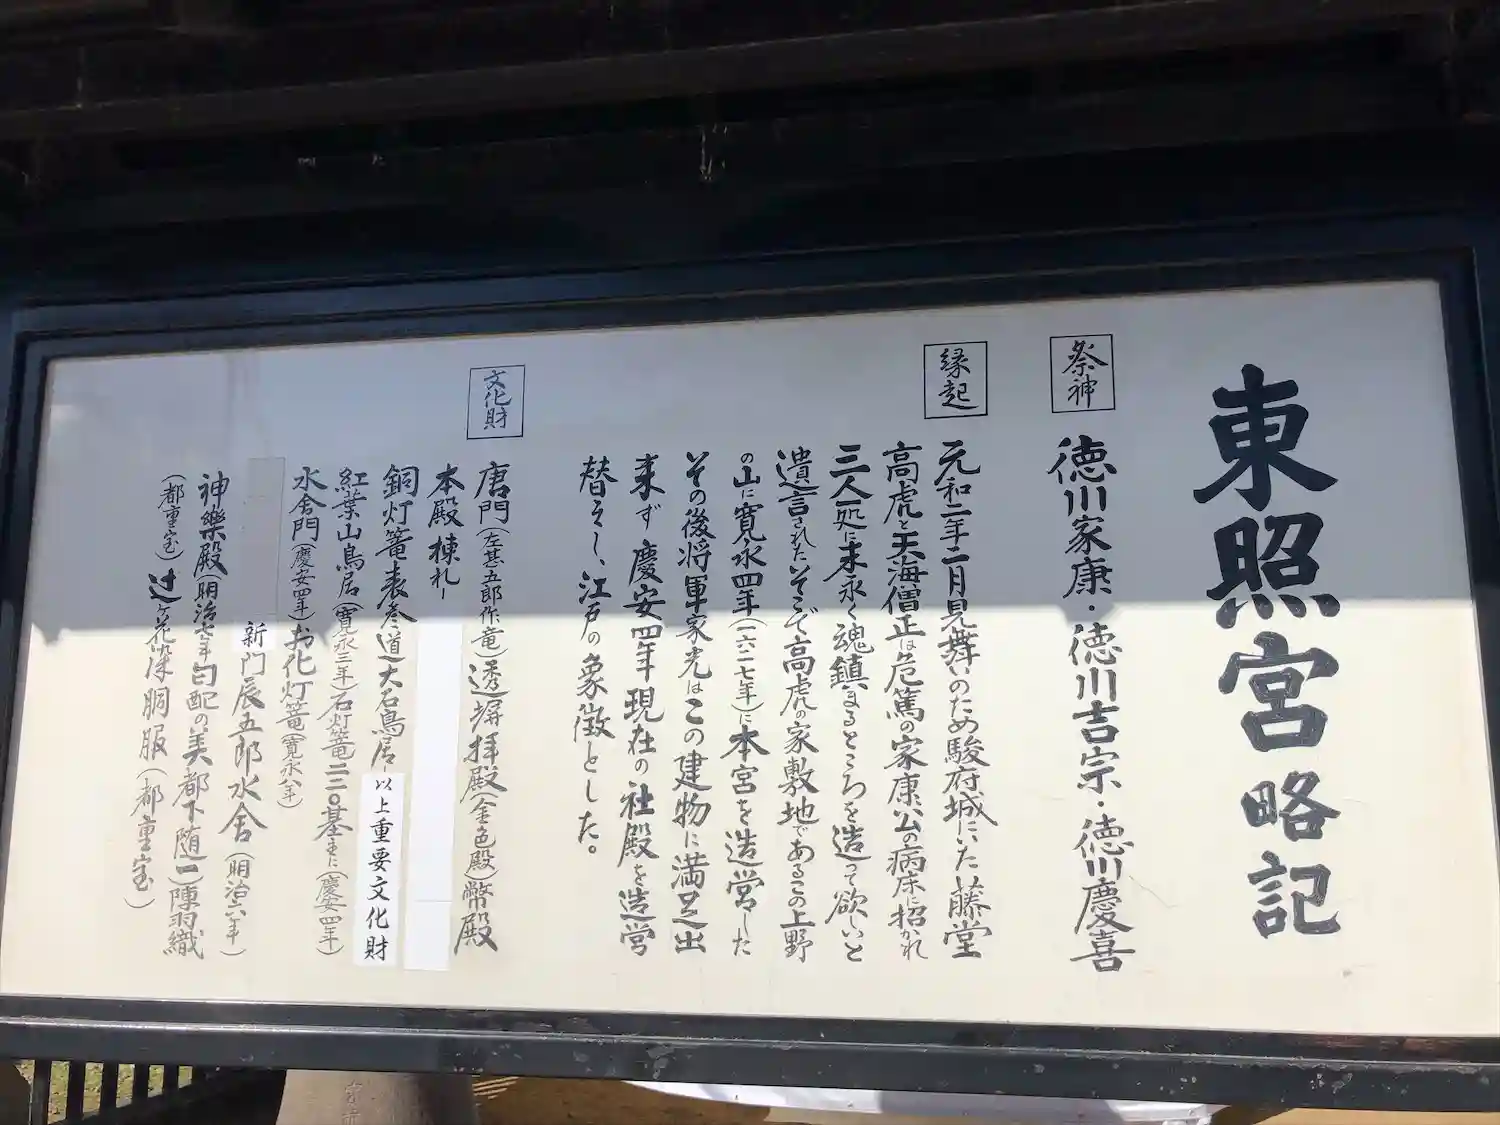 東照宮略記
祭神
徳川家康・徳川吉宗・徳川慶喜
縁起
元和二年二月見舞いのため駿府城にいた藤堂
高虎と天海僧正は危篤の家康公の病床に招かれ
三人一処に末永く魂鎮まるところを造って欲しいと
遺言されたいそこで高虎の家敷地であるこの上野
の山に寛永四年(一六二七年)に本宮を造営した
その後将軍家光はこの建物に満足出
来ず慶安四年現在の社殿を造営
替えし、江戸の象徴とした。
文化財
唐門(左甚五郎作竜)透塀拝殿(金色殿)幣殿
本殿棟札
銅灯篭表参道大石鳥居 以上重要文化財
紅葉山鳥居(寛永三年)石灯篭二二〇基(慶安四年)
水舎門(慶安四年)お化灯篭(寛永八年)
新門辰五郎水舎(明治六年)
神樂殿(明治七年勾配の美都下随一)陣羽織
(都重宝)辻ヶ花染胴服(都重宝)